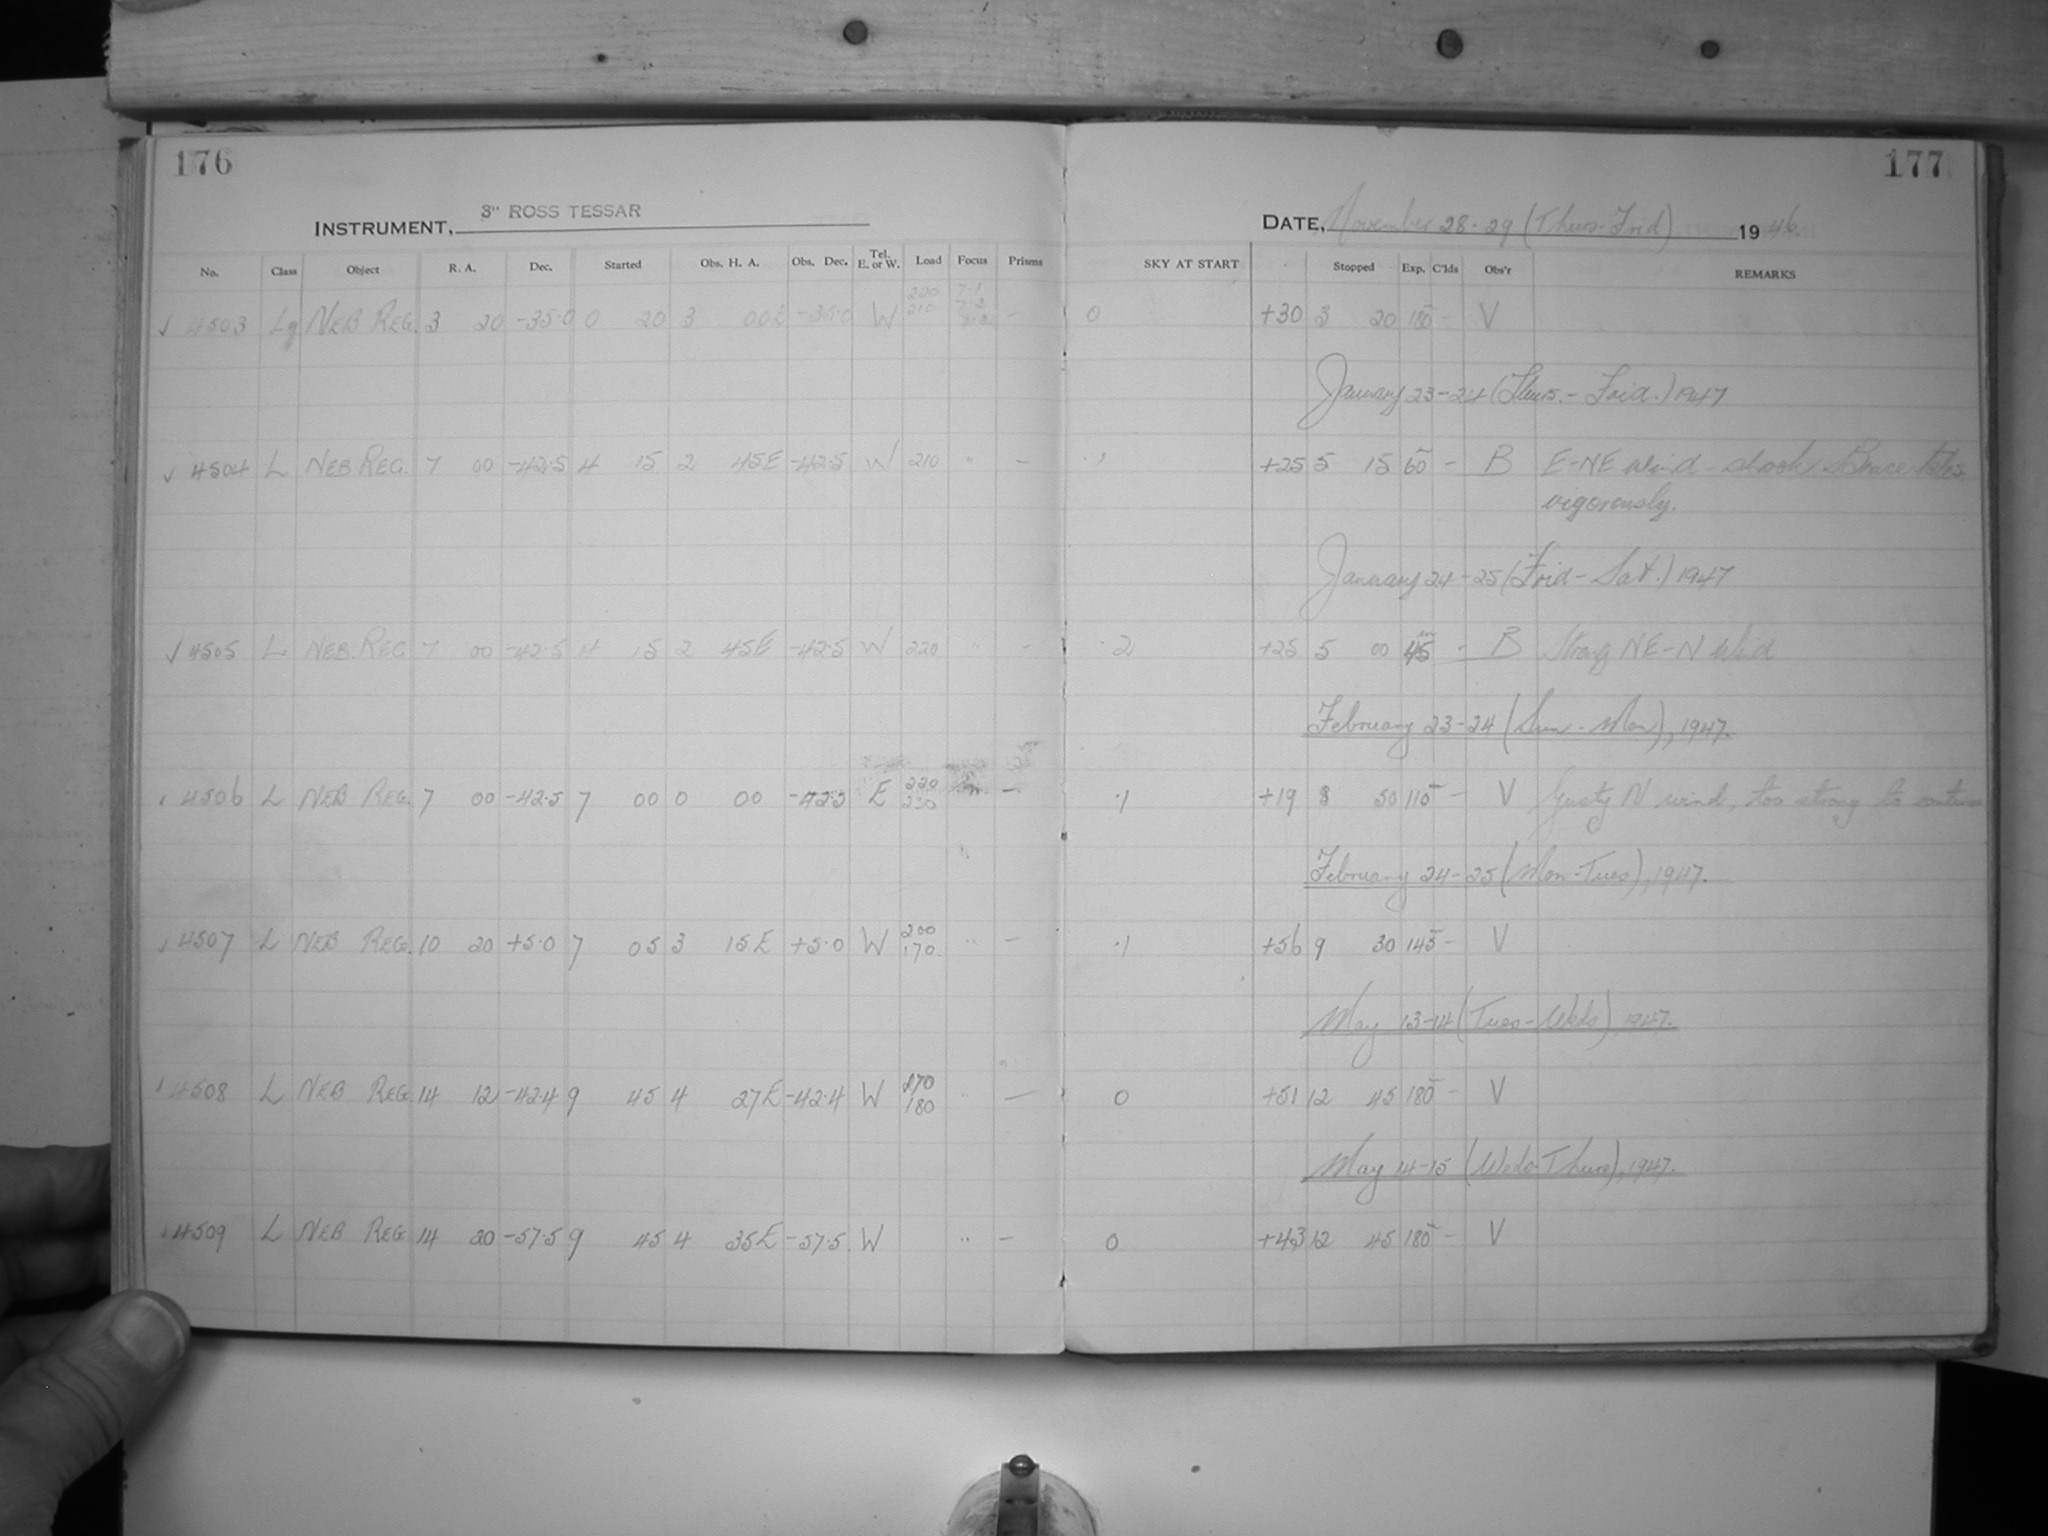 176
177
INSTRUMENT, 3" ROSS TESSAR
DATE, November 28-29 (Thurs-Frid) 1946.
No. Class Object R. A. Dec. Started Obs. H. A. Obs. Dec. Tel. E. or W. Load Focus Prisms SKY AT START Stopped Exp. C'lds Obs'r REMARKS
✓ 4503 Lg NEB REG. 3 20 -35.0 0 20 3 00E -35.0 W 220 210 7.1 7.2 - 0 +30 3 20 180 - V
January 23-24 (Thurs.-Frid.) 1947
✓ 4504 L NEB REG. 7 00 -42.5 4 15 2 45E -42.5 W 210 " - .1 +25 5 15 60 - B E-NE wind - shook Bruce
vigorously.
January 24-25 (Frid-Sat.) 1947
✓ 4505 L NEB. REG 7 00 -42.5 4 15 2 45E -42.5 W 220 " - .2 +25 5 00 45 - B Strong NE-N Wind
February 23-24 (Sun-Mon), 1947.
✓ 4506 L NEB REG. 7 00 -42.5 7 00 0 00 -42.5 E 220 230 - .1 +19 8 50 115 - V Gusty N wind, too strong to continue
February 24-25 (Mon-Tues), 1947.
✓ 4507 L NEB REG. 10 20 +5.0 7 05 3 15E +5.0 W 200 170. " - .1 +56 9 30 145 - V
May 13-14 (Tues-Weds) 1947.
✓ 4508 L NEB REG 14 12 -42.4 9 45 4 27E -42.4 W 270 180 " - 0 +51 12 45 180 - V
May 14-15 (Weds-Thurs), 1947.
✓ 4509 L NEB REG 14 20 -57.5 9 45 4 35E -57.5 W " - 0 +43 12 45 180 - V